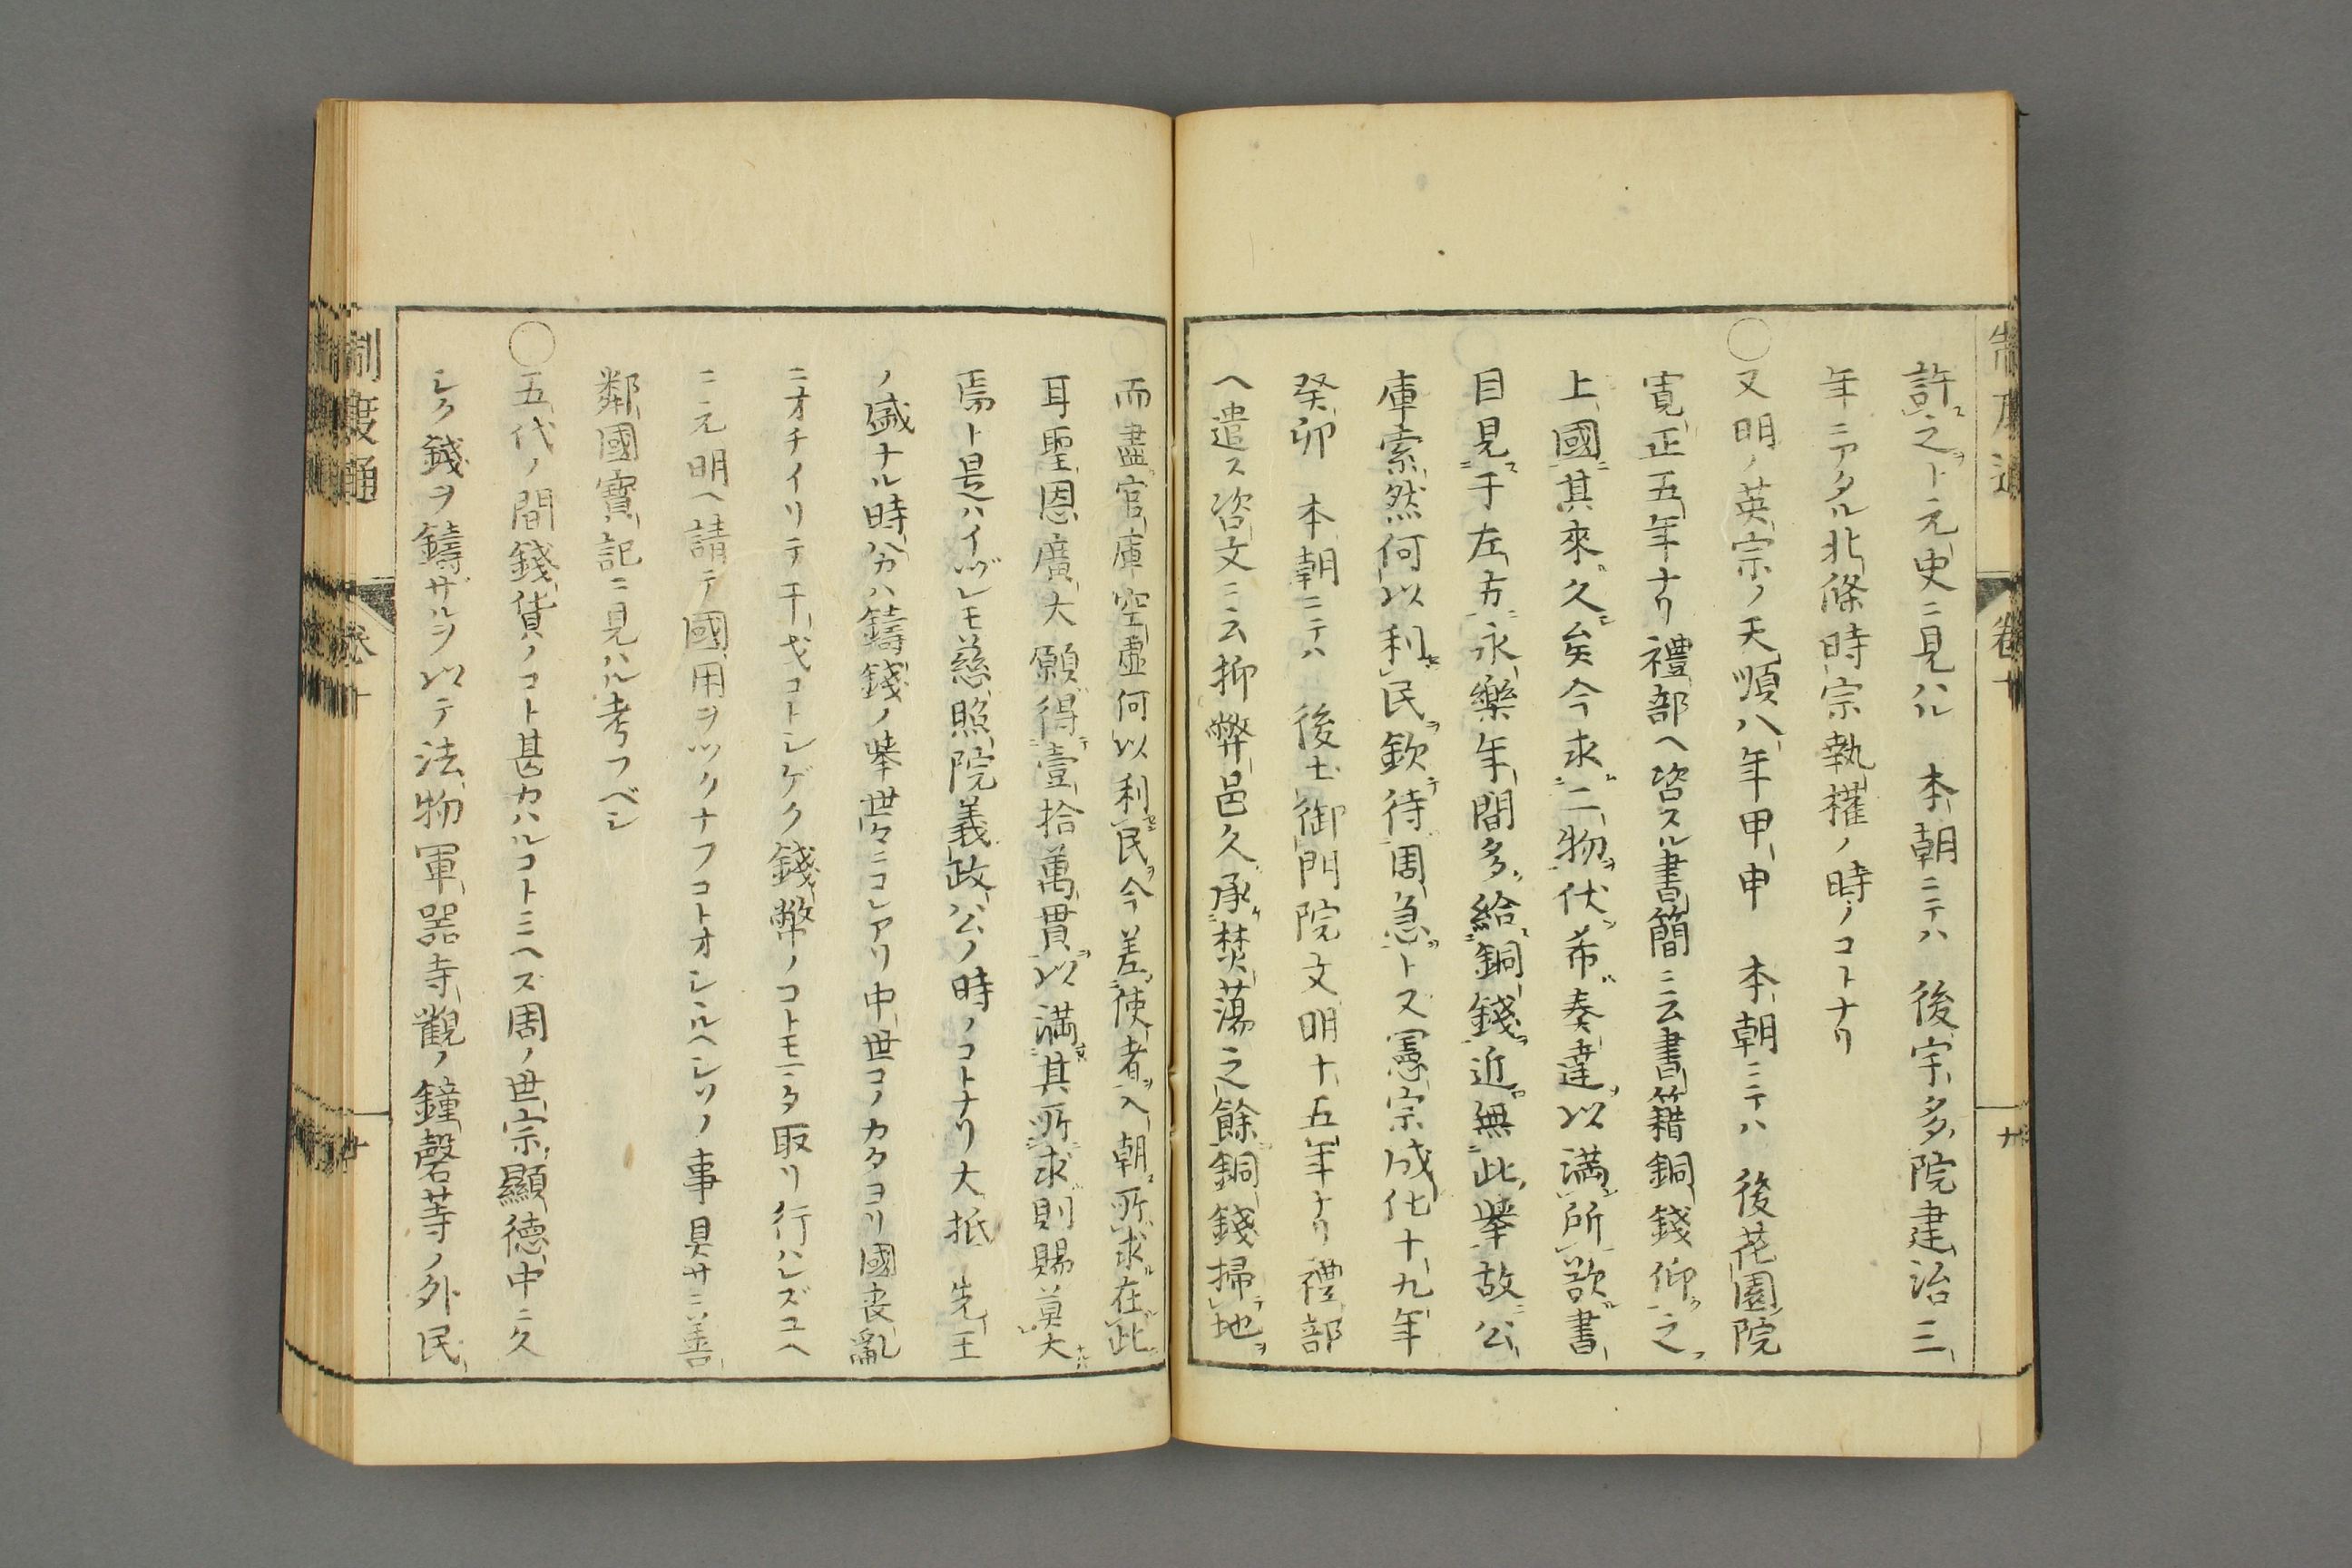 許之ト元史ニ見ハル 本朝ニテハ 後宇多院建治三
年ニアタル北條時宗執權ノ時ノコトナリ
○又明ノ英宗ノ天順八年甲申 本朝ニテハ 後花園院
寛正五年ナリ禮部ヘ咨スル書簡ニ云書籍銅錢仰之
上國其來久矣今求二物伏希奏達以滿所欲書
目見于左方永樂年間多給銅錢近無此舉故公
庫索然何以利民欽待周急ト又憲宗成化十九年
癸卯 本朝ニテハ 後土御門院文明十五年ナリ禮部
ヘ遣ス咨文ニ云抑弊邑久承焚蕩之餘銅錢掃地
而盡官庫空虛何以利民今差使者入朝所求在此
耳聖恩廣大願得壹拾萬貫以滿其所求則賜莫大
焉ト是ハイヅレモ慈照院義政公ノ時ノコトナリ大抵 先王
ノ盛ナル時分ハ鑄錢ノ舉世々ニコレアリ中世コノカタヨリ國喪亂
ニオチイリテ干戈コトシゲク錢幣ノコトモミタ取リ行ハレズユヘ
ニ元明ヘ請テ國用ヲツクナフコトオシルヘシソノ事具サニ善
鄰國寶記ニ見ハル考フベシ
○五代ノ間錢貨ノコト甚カハルコトミヘズ周ノ世宗顯德中ニ久
シク錢ヲ鑄ザルヲ以テ法物軍器寺觀ノ鐘磬等ノ外民
制度通
卷十
廿